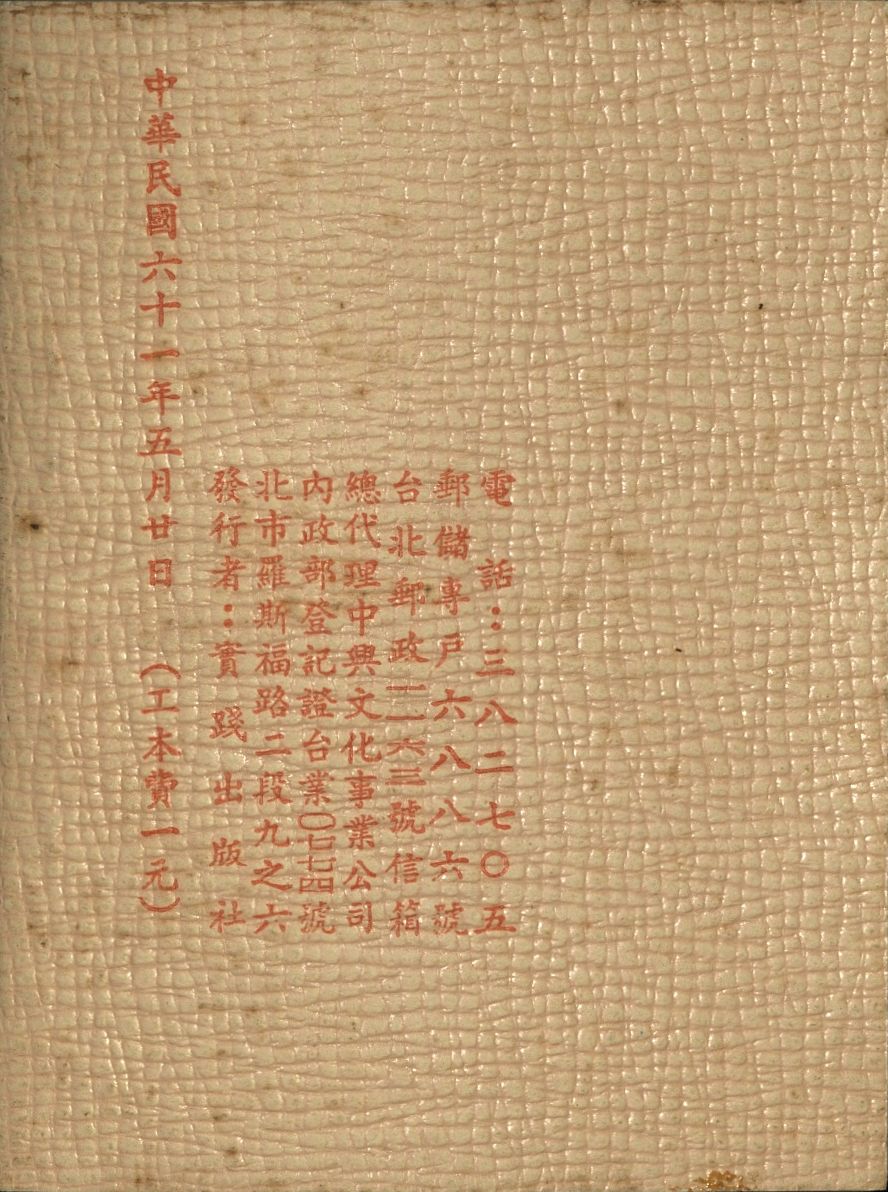 電話：三八二七〇五
郵儲專戶六八八六號
台北郵政一一六三號信箱
總代理中興文化事業公司
內政部登記證台業〇七七四號
北市羅斯福路二段九之六
發行者：實踐出版社
中華民國六十一年五月廿日 （工本費一元）